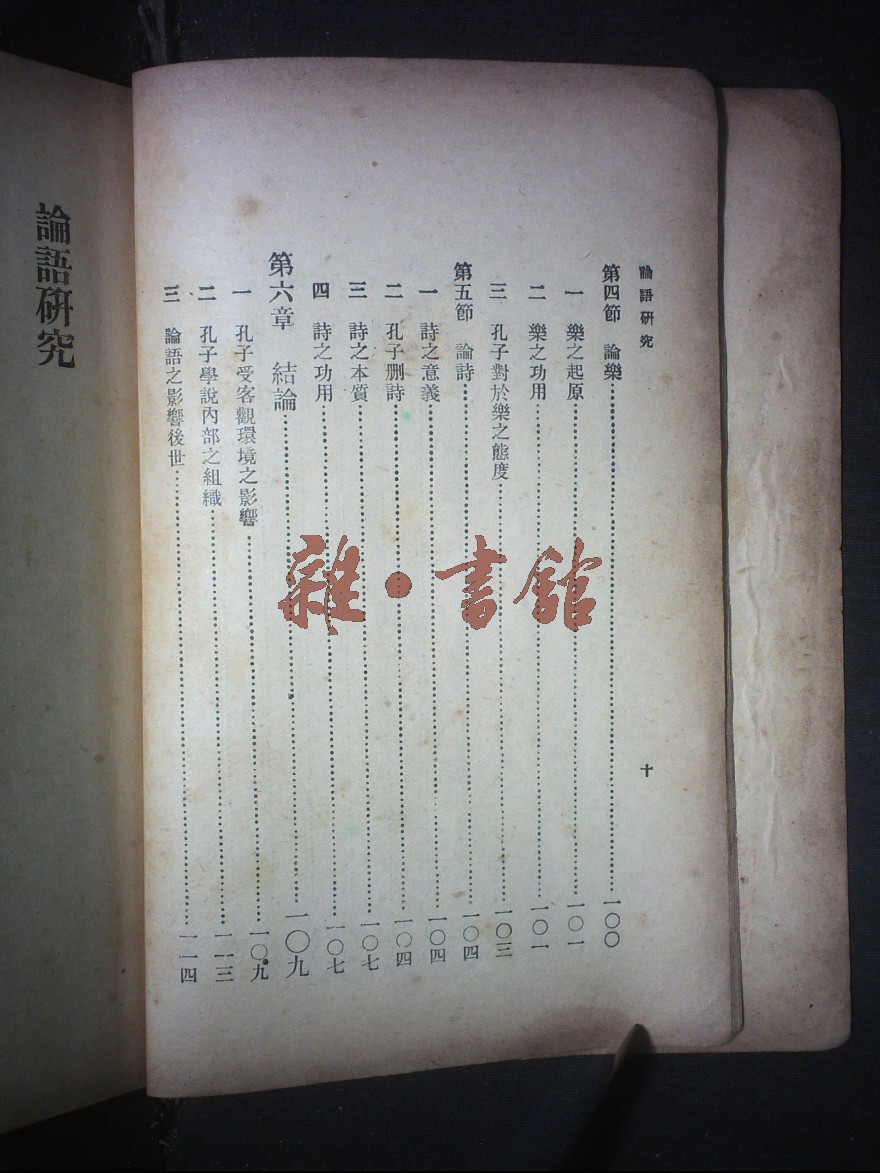 論語研究
十
第四節 論樂……一〇〇
一 樂之起原……一〇一
二 樂之功用……一〇一
三 孔子對於樂之態度……一〇三
第五節 論詩……一〇四
一 詩之意義……一〇四
二 孔子刪詩……一〇四
三 詩之本質……一〇七
四 詩之功用……一〇七
第六章 結論……一〇九
一 孔子受客觀環境之影響……一〇九
二 孔子學說內部之組織……一一三
三 論語之影響後世……一一四
論語研究
雜·書館